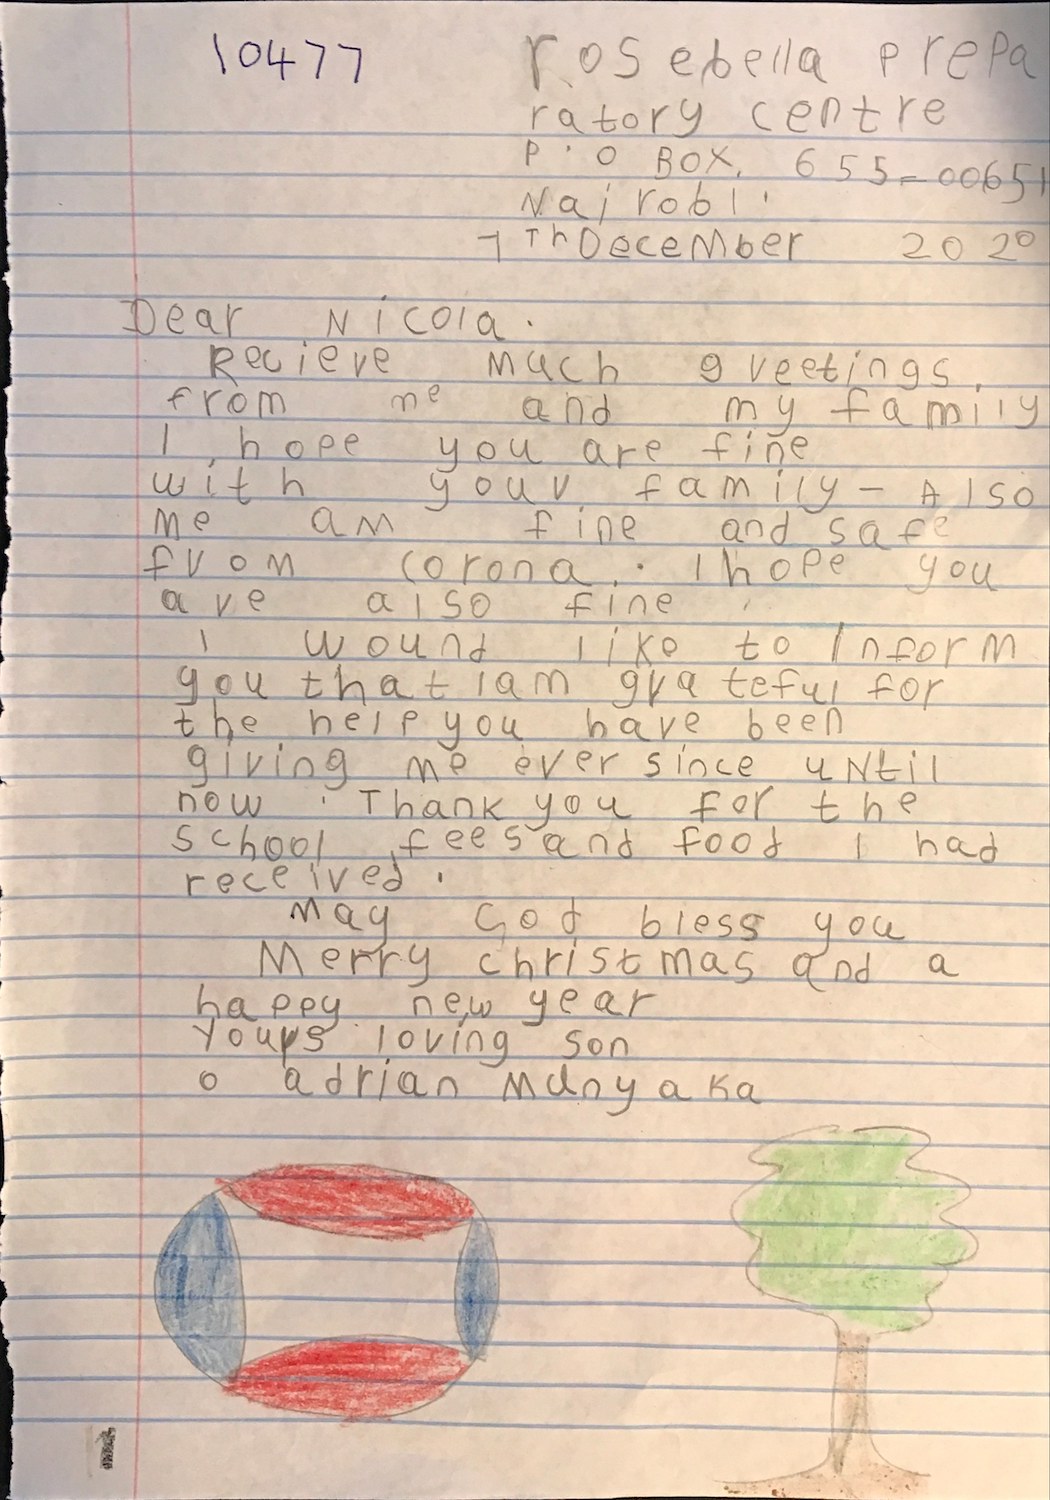 10477
rosebella prepa
ratory centre
P.O BOX. 655-00651
Nairobi.
7th December 2020
Dear Nicola.
Recieve much greetings.
from me and my family
I hope you are fine
with your family - Also
me am fine and safe
from corona. I hope you
are also fine.
I wound like to Inform
you that Iam grateful for
the help you have been
giving me ever since until
now. Thank you for the
school fees and food I had
received.
May God bless you
Merry christmas and a
happy new year
Yours loving son
o adrian Munyaka
1